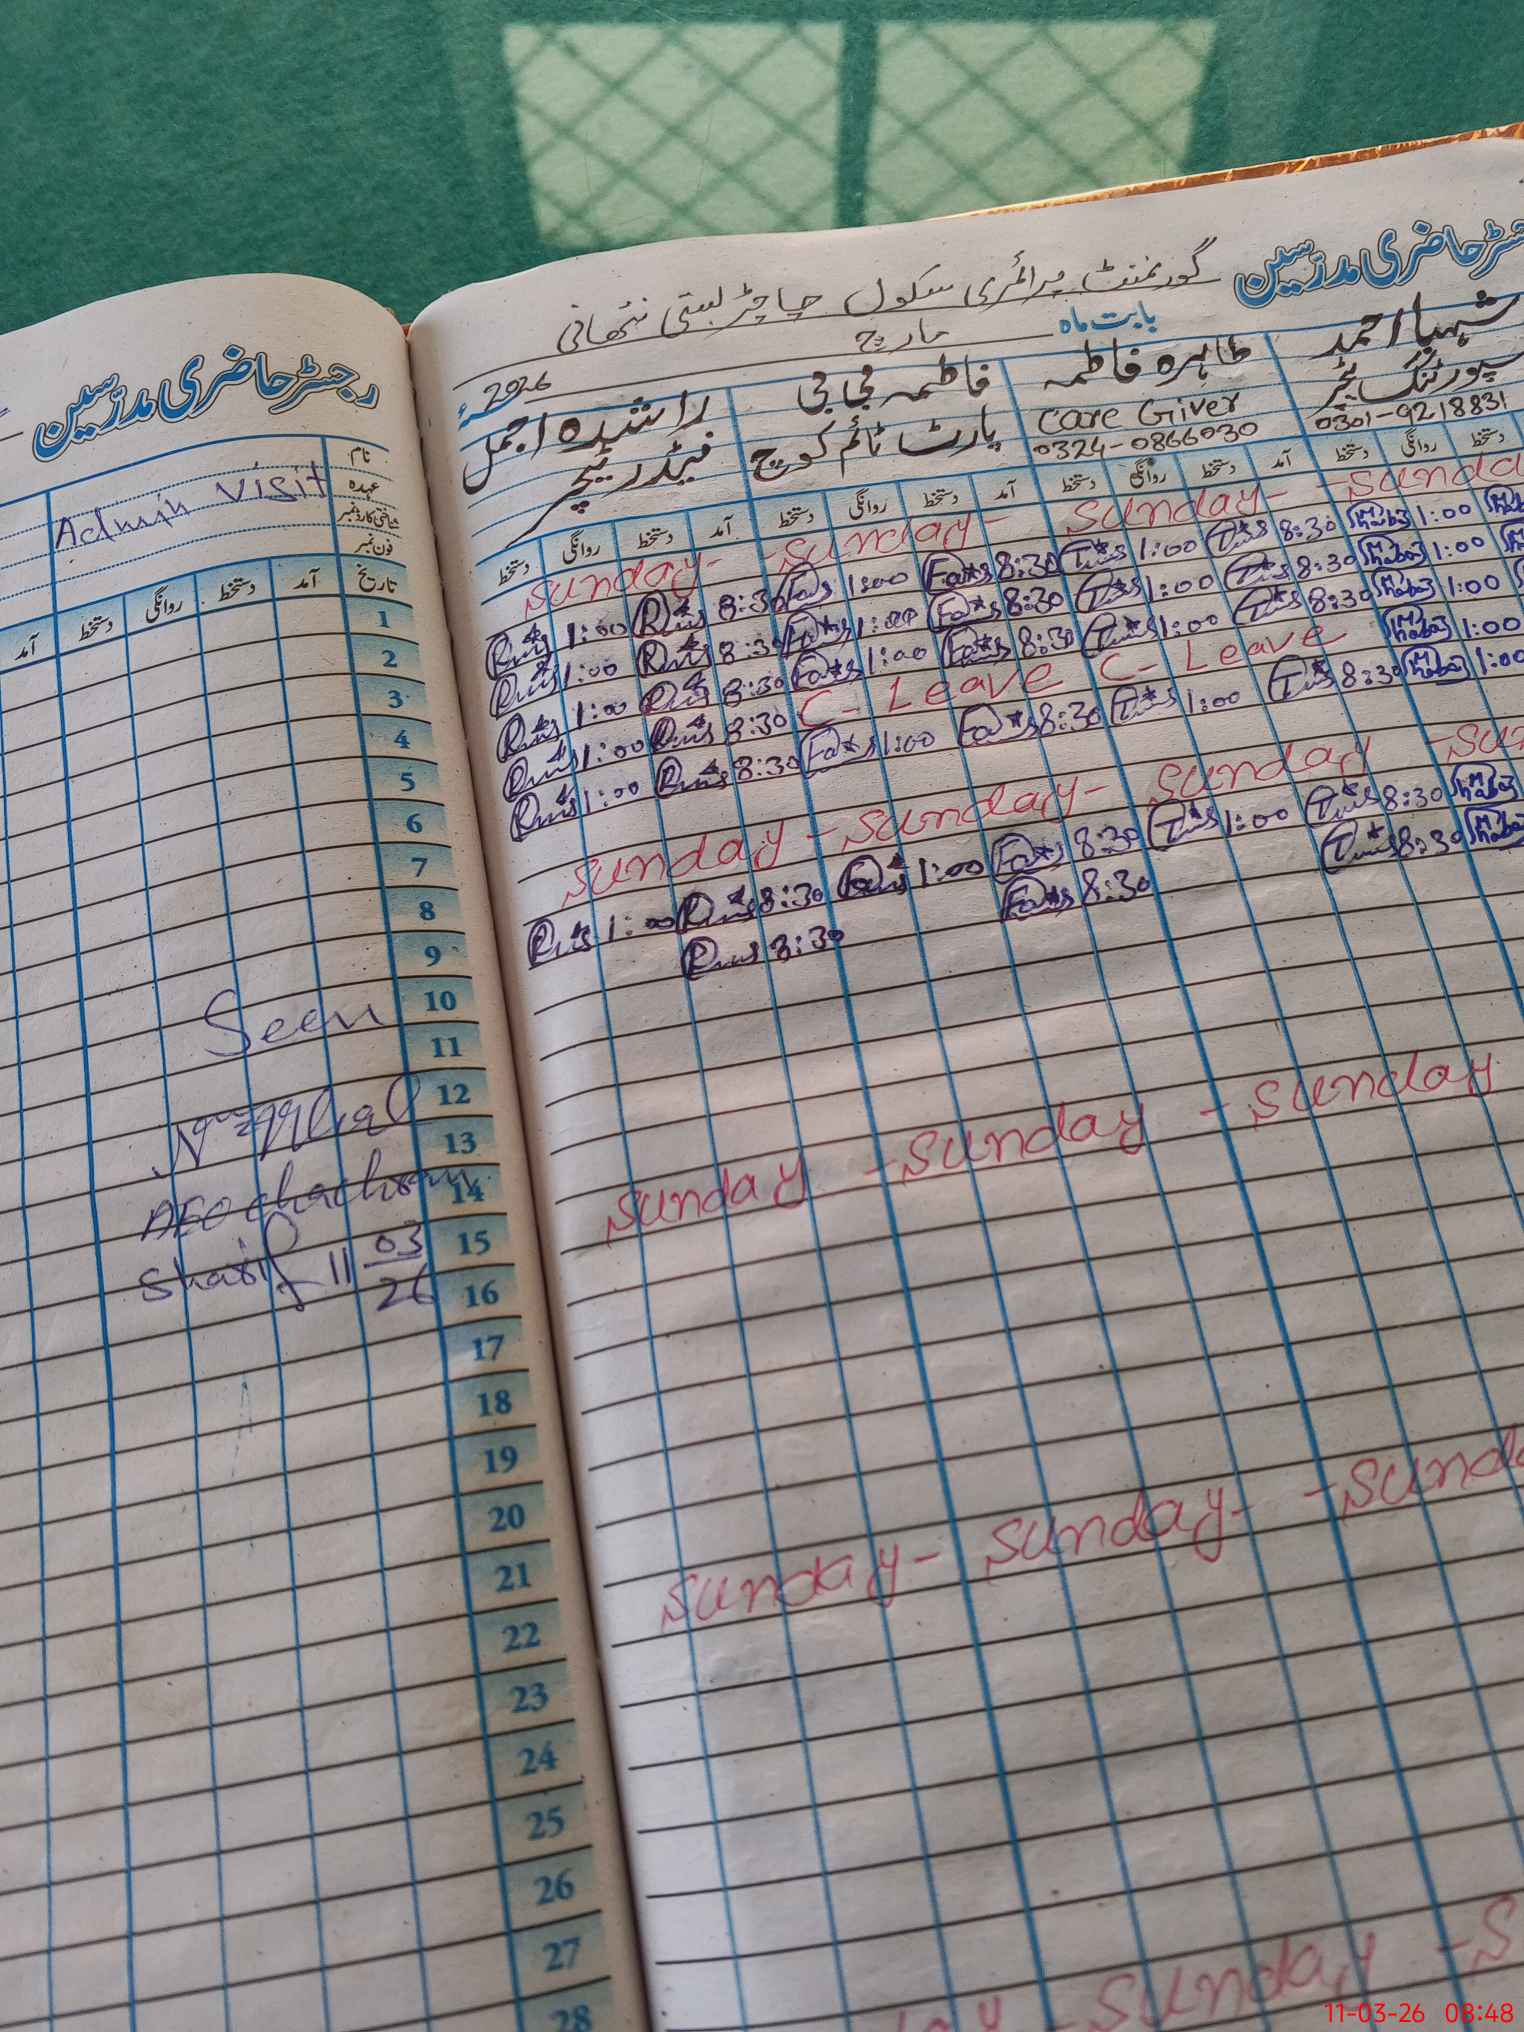 رجسٹر حاضری مدرسین
نام
Admin Visit
عہدہ
شناختی کارڈ نمبر
فون نمبر
تاریخ آمد دستخط روانگی دستخط آمد
1
2
3
4
5
6
7
8
9
10
Seen
11
12
13
14
AEO chachran
15
Sharif 11 03
26
16
17
18
19
20
21
22
23
24
25
26
27
28
رجسٹر حاضری مدرسین
گورنمنٹ پرائمری سکول چاچڑ بستی نتھانی
بابت ماہ مارچ
2026ء
شہباز احمد
سپورٹنگ ٹیچر
0301-9218831
طاہرہ فاطمہ
Care Giver
0324-0866030
فاطمہ بی بی
پارٹ ٹائم کوچ
راشدہ اجمل
فیڈر ٹیچر
دستخط روانگی دستخط آمد دستخط روانگی دستخط آمد دستخط روانگی دستخط
Sunday - - Sunday - Sunday - - Sunda
1:00 8:30 1:00 8:30 1:00 8:30 1:00
1:00 8:30 1:00 8:30 1:00 8:30 1:00
1:00 8:30 1:00 8:30 1:00 8:30 1:00
1:00 8:30 C- Leave C- Leave 1:00
1:00 8:30 1:00 8:30 1:00 8:30 1:00
Sunday - Sunday - Sunday - Sun
1:00 8:30 1:00 8:30 1:00 8:30
8:30 8:30 8:30
Sunday - Sunday - Sunday
Sunday - Sunday - - Sunda
ay - Sunday - S
11-03-26 08:48